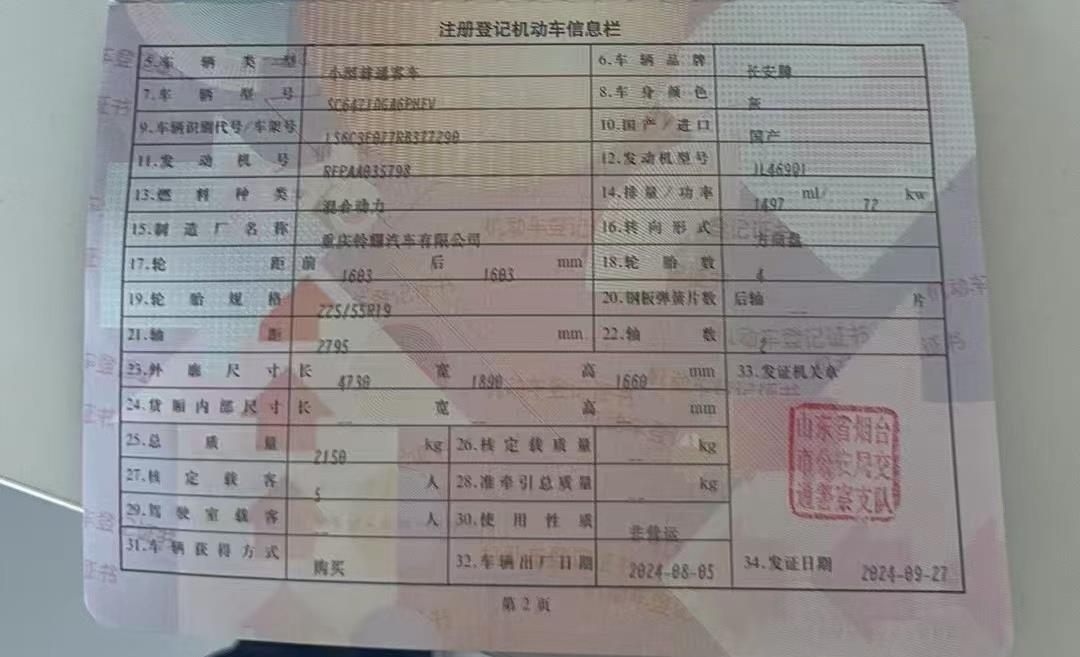 注册登记机动车信息栏
5.车辆类型 小型普通客车 6.车辆品牌 长安牌
7.车辆型号 SC6471DGA6PHEV 8.车身颜色 灰
9.车辆识别代号/车架号 10.国产/进口 国产
11.发动机号 RFPAA035798 12.发动机型号 JL469Q1
13.燃料种类 混合动力 14.排量/功率 1497 ml/ 72 kw
15.制造厂名称 重庆铃耀汽车有限公司 16.转向形式 方向盘
17.轮距 前 1603 后 1603 mm 18.轮胎数 4
19.轮胎规格 225/55R19 20.钢板弹簧片数 后轴 片
21.轴距 2795 mm 22.轴数 2
23.外廓尺寸 长 4730 宽 1890 高 1660 mm 33.发证机关章
24.货厢内部尺寸 长 -- 宽 -- 高 -- mm
25.总质量 2150 kg 26.核定载质量 -- kg
27.核定载客 5 人 28.准牵引总质量 -- kg
29.驾驶室载客 -- 人 30.使用性质 非营运
31.车辆获得方式 购买 32.车辆出厂日期 2024-08-05 34.发证日期 2024-09-27
山东省烟台
市公安局交
通警察支队
第2页